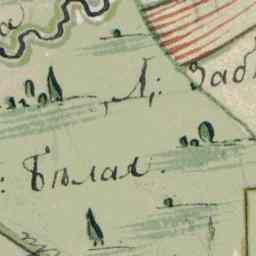 Л:
Заб
: Бѣлая.